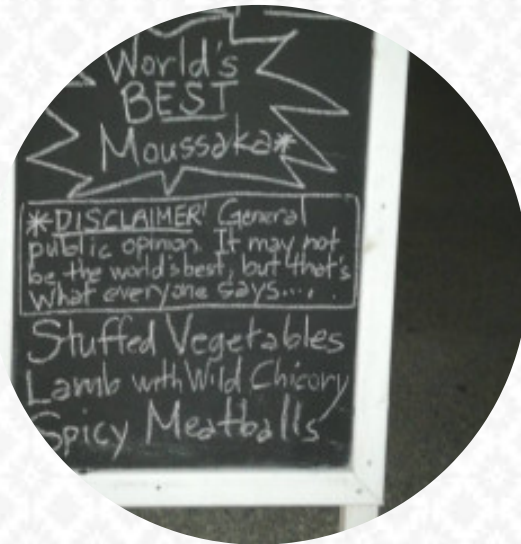 World's
BEST
Moussaka*
*DISCLAIMER! General
public opinion. It may not
be the world's best, but that's
what everyone says....
Stuffed Vegetables
Lamb with Wild Chicory
Spicy Meatballs